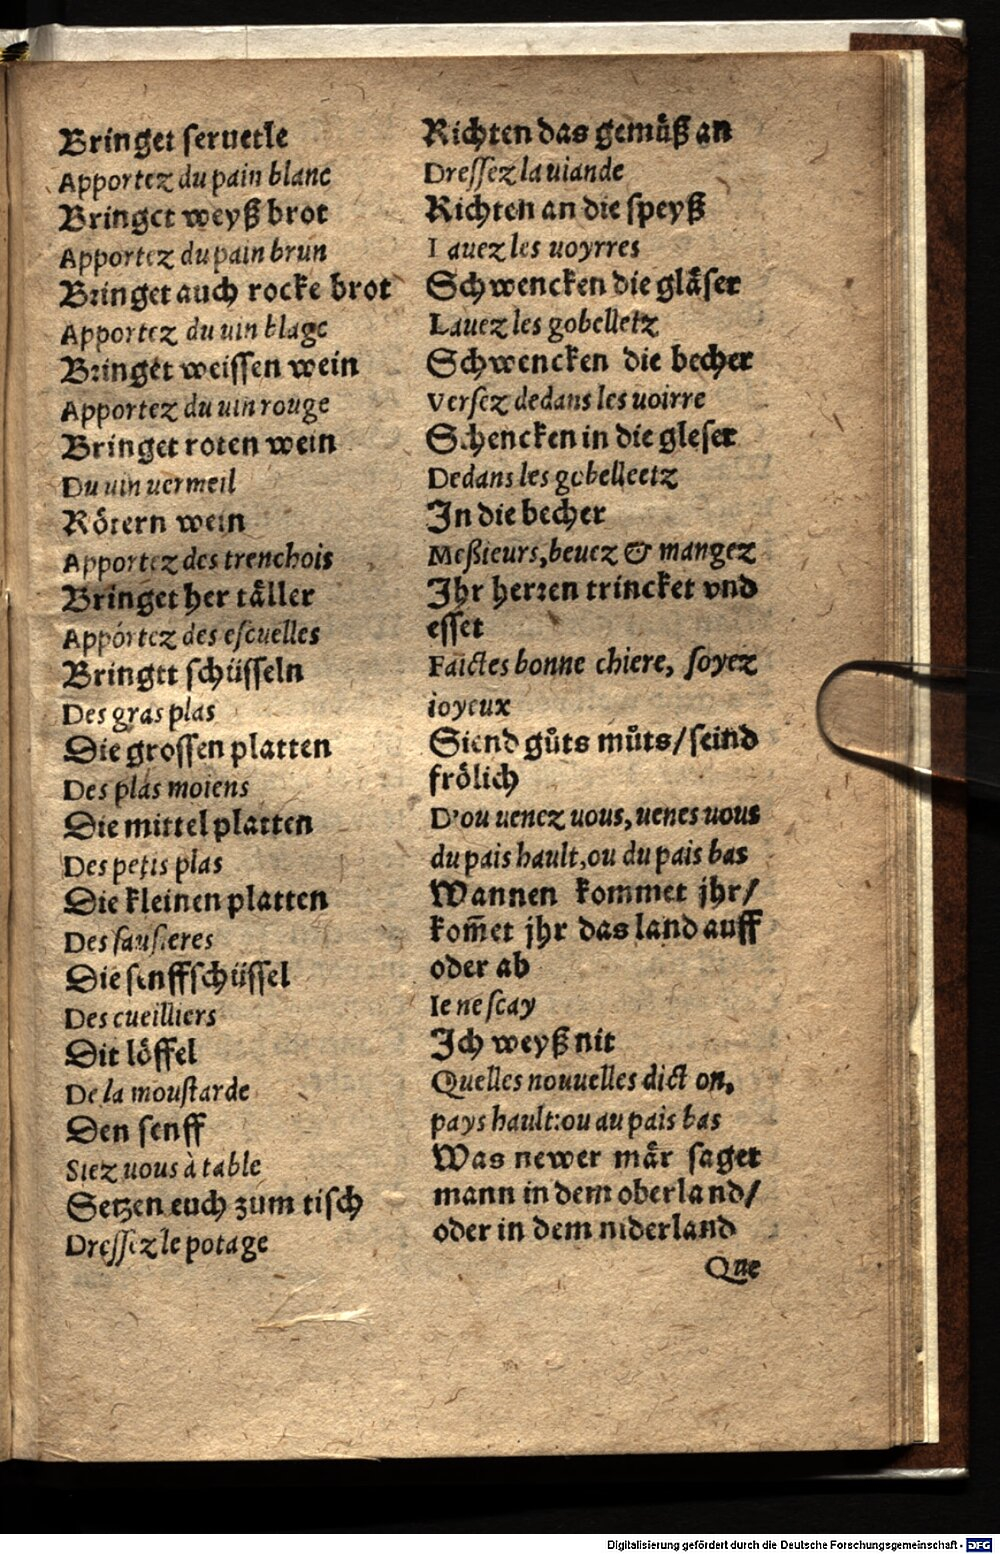 Bringet seruetle
Apportez du pain blanc
Bringet weyß brot
Apportez du pain brun
Bringet auch rocke brot
Apportez du uin blage
Bringet weissen wein
Apportez du uin rouge
Bringet roten wein
Du uin uermeil
Rötern wein
Apportez des trenchois
Bringet her täller
Apportez des escuelles
Bringtt schüsseln
Des gras plas
Die grossen platten
Des plas moiens
Die mittel platten
Des petis plas
Die kleinen platten
Des sausieres
Die senffschüssel
Des cueilliers
Dit löffel
De la moustarde
Den senff
Siez uous à table
Setzen euch zum tisch
Dressez le potage
Richten das gemüß an
Dressez la uiande
Richten an die speyß
Lauez les uoyrres
Schwencken die gläser
Lauez les gobelletz
Schwencken die becher
Versez dedans les uoirre
Schencken in die gleser
Dedans les gobelleetz
In die becher
Meßieurs, beuez & mangez
Ihr herren trincket vnd
esset
Faictes bonne chiere, soyez
ioyeux
Siend gůts můts/ seind
frölich
D'ou uenez uous, uenes uous
du pais hault, ou du pais bas
Wannen kommet jhr/
kom̃et jhr das land auff
oder ab
Ie ne scay
Ich weyß nit
Quelles nouuelles dict on,
pays hault: ou au pais bas
Was newer mär saget
mann in dem oberland/
oder in dem niderland
Que
Digitalisierung gefördert durch die Deutsche Forschungsgemeinschaft - DFG